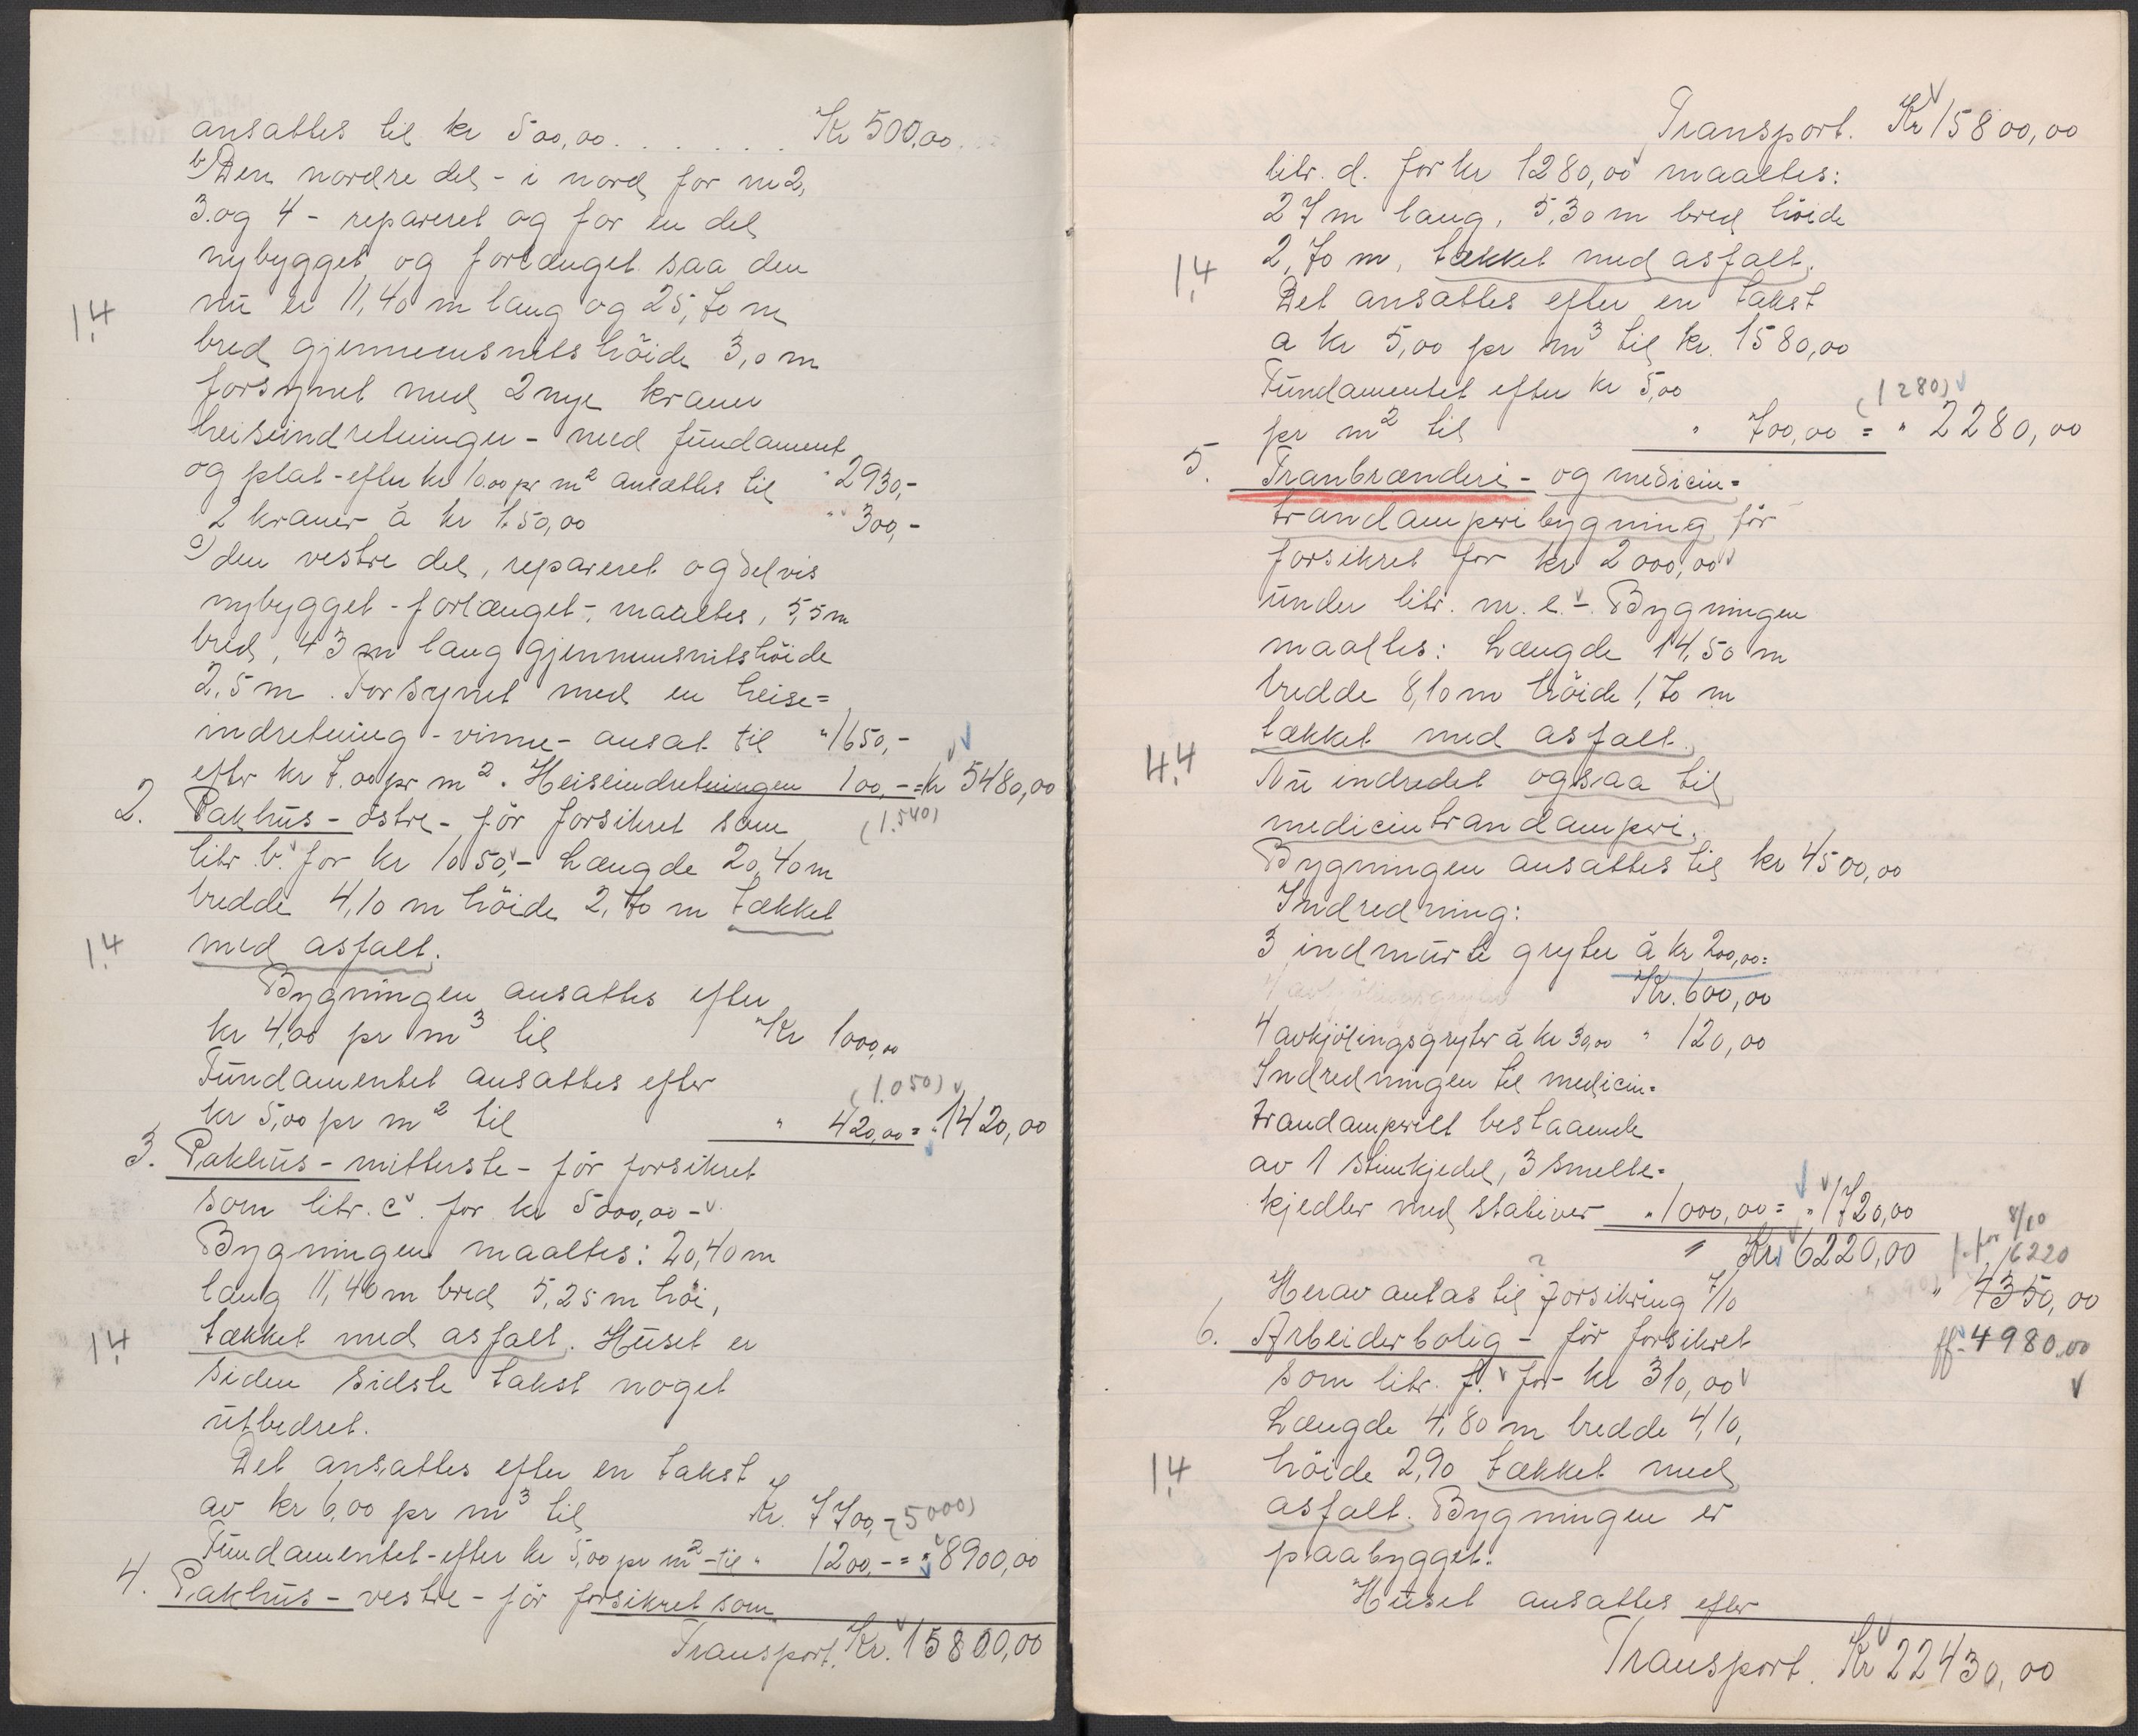 ansattes til kr 500,00 . . . . . . . Kr 500,00
b) Den nordre del - i nord for nr 2,
3. og 4 - repareret og for en del
nybygget og forlænget saa den
1,4 nu er 11,40 m lang og 25,70 m
bred gjennemsnitshöide 3,0 m
forsynet med 2 nye kraner
heiseindretninger - med fundament
og plat - efter kr 10.00 pr m2 ansættes til " 2930,-
2 kraner à kr 150,00 " " 300,-
c) den vestre del, repareret og delvis
nybygget - forlænget -, maaltes, 5,5 m
bred, 43 m lang gjennemsnitshöide
2,5 m. Forsynet med en heise=
indretning - vinne - ansat til " 1650,-
efter kr 7.00 pr m2. Heiseindretningen 100,- = kr 5480,00
2. Pakhus - östre - för forsikret som (1.540)
litr b. for kr 1050,- Længde 20,40 m
bredde 4,10 m höide 2,70 m tækket
1,4 med asfalt.
Bygningen ansattes efter
kr 4,00 pr m3 til "Kr 1000,00
Fundamentet ansattes efter (1.050)
kr 5,00 pr m2 til " 420,00 = " 1420,00
3. Pakhus - mitterste - för forsikret
som litr. c. for kr 5000,00 -
Bygningen maaltes: 20,40 m
lang 11,40 m bred 5,25 m höi,
1,4 tækket med asfalt. Huset er
siden sidste takst noget
utbedret.
Det ansattes efter en takst
av kr 6,00 pr m3 til Kr. 7700,- (5000)
Fundamentet - efter kr 5,00 pr m2 - til " 1200,- = " 8900,00
4. Pakhus - vestre - för forsikret som
Transport. Kr. 15800,00
Transport. Kr 15800,00
litr. d. for kr 1280,00 maaltes:
27 m lang, 5,30 m bred höide
1,4 2,70 m, tækket med asfalt.
Det ansattes efter en takst
a kr 5,00 pr m3 til kr. 1580,00
Fundamentet efter kr 5,00 (1280)
pr m2 til " 700,00 = " 2280,00
5. Tranbrænderi - og medicin=
trandamperibygning för
forsikret for kr 2000,00
under litr. nr. e. - Bygningen
maaltes: Længde 14,50 m
bredde 8,10 m höide 1,70 m
tækket med asfalt.
4,4 Nu indredet ogsaa til
medicintrandamperi.
Bygningen ansattes til kr 4500,00
Indredning:
3 indmurte gryter à kr 200,00 =
Kr. 600,00
4 avkjölingsgryter à kr 30,00 " 120,00
Indredningen til medicin=
trandamperiet bestaaende
av 1 stimkjedel, 3 smelte=
kjedler med stativer " 1000,00 = " 1720,00
" Kr 6220,00 8/10 6220
Herav antas til forsikring 7/10 " 4350,00
6. Arbeiderbolig - för forsikret ff. 4980.00
som litr. f. for kr 310,00
Længde 4,80 m bredde 4,10,
1,4 höide 2,90 tækket med
asfalt. Bygningen er
paabygget.
Huset ansattes efter
Transport. Kr 22430,00